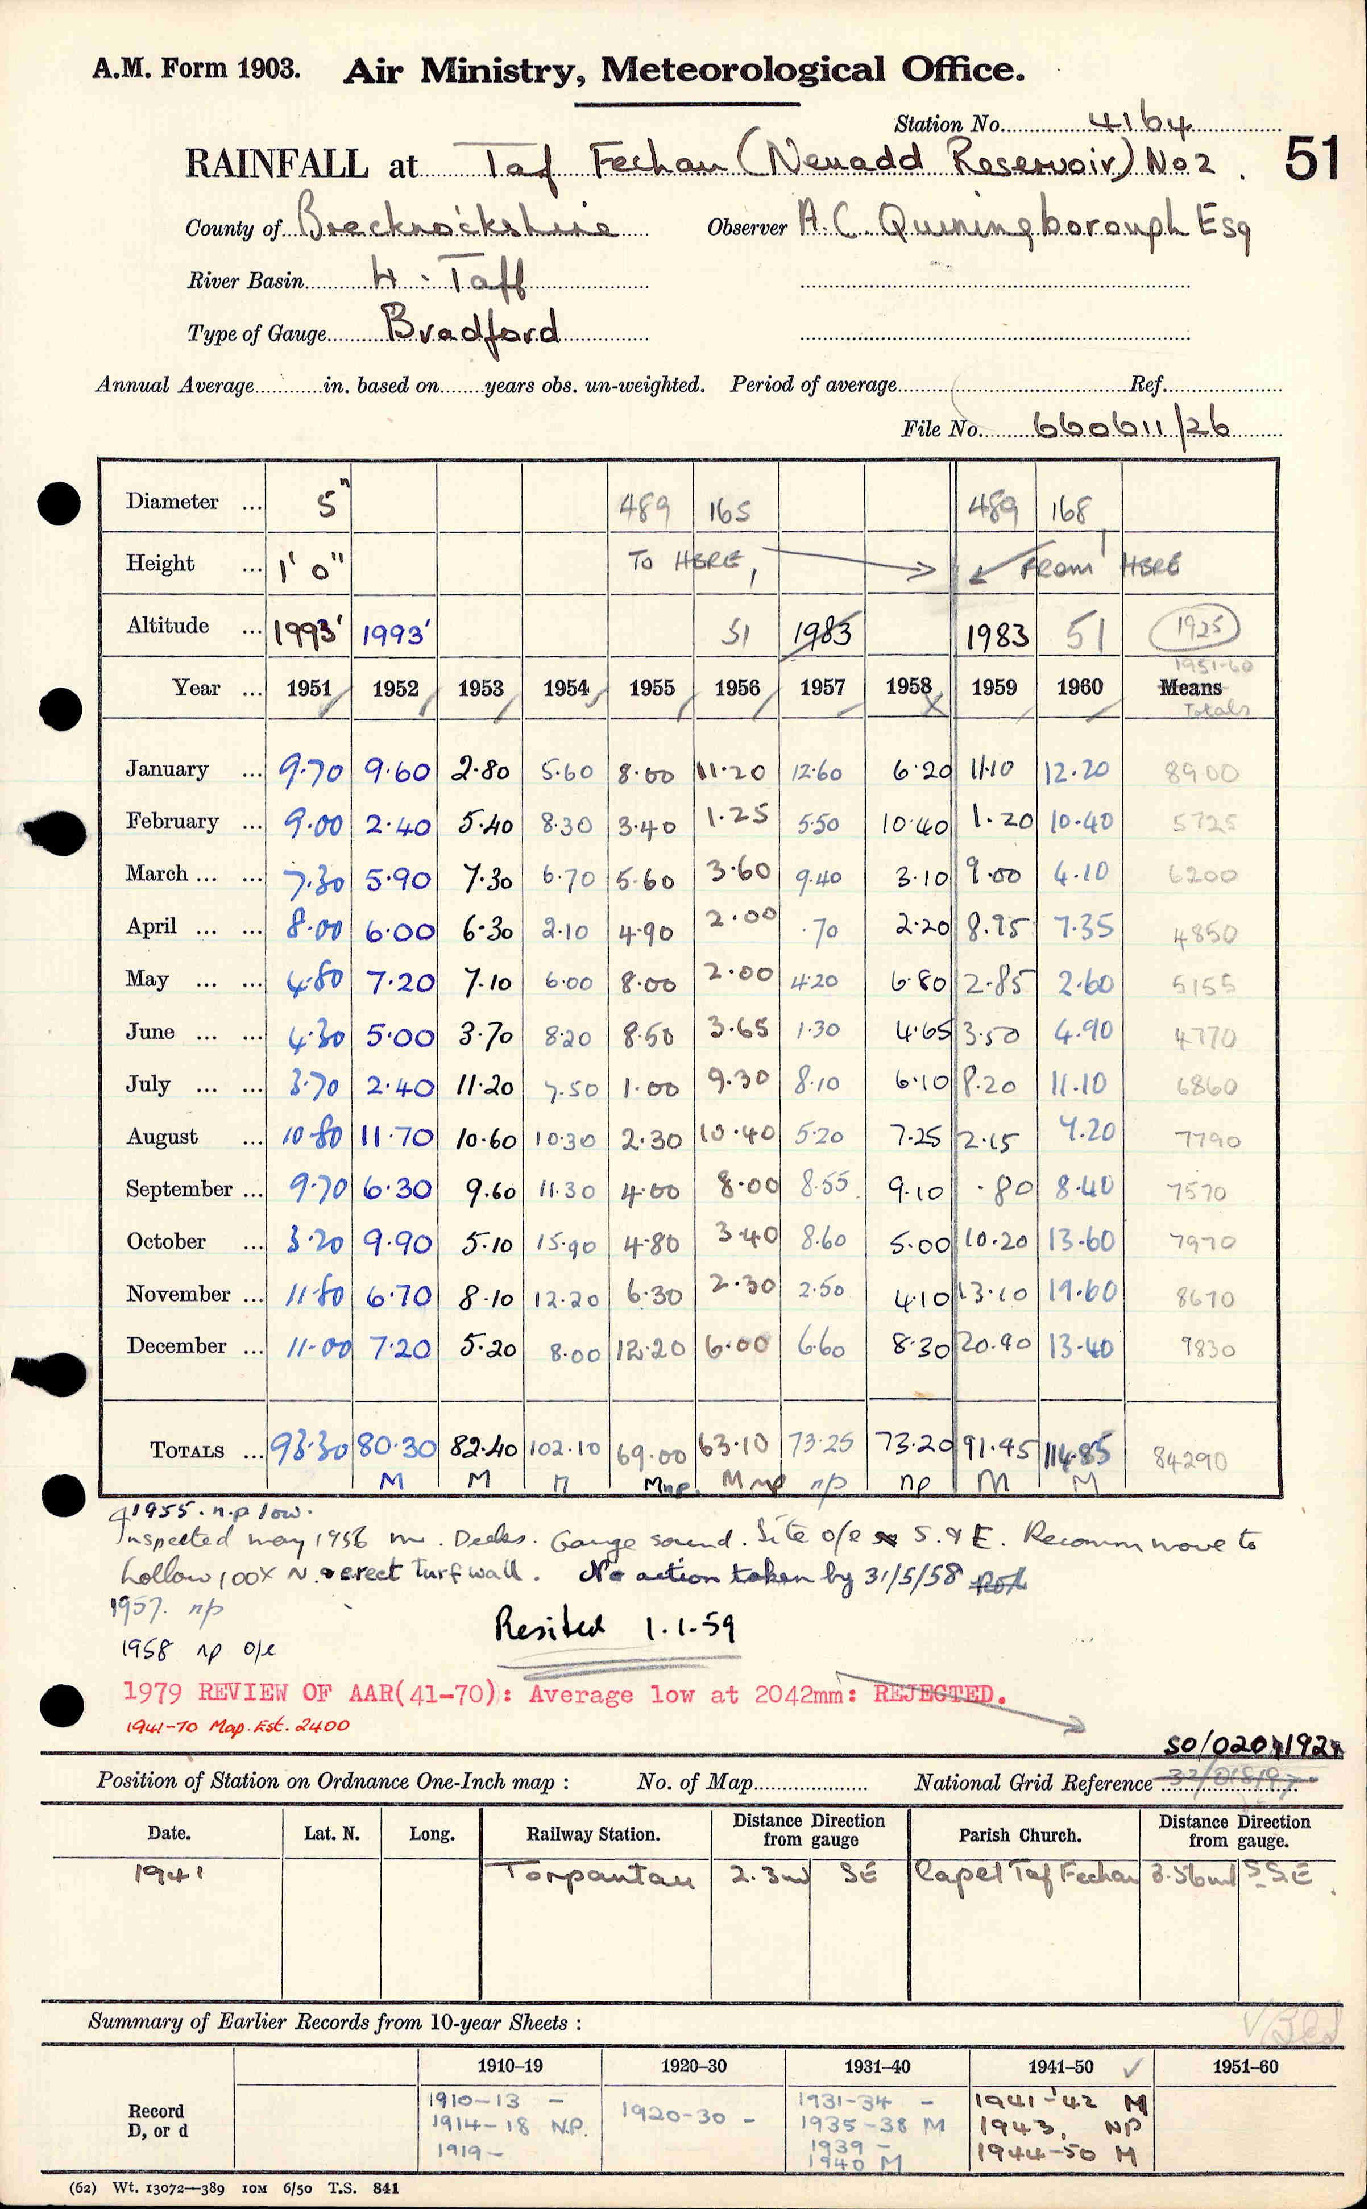 A.M. Form 1903. Air Ministry, Meteorological Office.
Station No. 4164
RAINFALL at Taf Fechan (Neuadd Reservoir) No 2. 51
County of Brecknockshire Observer A. C. Quiningborough Esq
River Basin H. Taff
Type of Gauge Bradford
Annual Average in. based on years obs. un-weighted. Period of average Ref.
File No. 660611/26
Diameter ... 5" 489 165 489 168
Height ... 1' 0" TO HERE, FROM HERE
Altitude ... 1993' 1993' 51 1983 1983 51 1925
1951-60
Year ... 1951 1952 1953 1954 1955 1956 1957 1958 1959 1960 Means
Totals
January ... 9.70 9.60 2.80 5.60 8.00 11.20 12.60 6.20 11.10 12.20 8900
February ... 9.00 2.40 5.40 8.30 3.40 1.25 5.50 10.40 1.20 10.40 5725
March ... ... 7.30 5.90 7.30 6.70 5.60 3.60 9.40 3.10 9.00 4.10 6200
April ... ... 8.00 6.00 6.30 2.10 4.90 2.00 .70 2.20 8.95 7.35 4850
May ... ... 4.80 7.20 7.10 6.00 8.00 2.00 4.20 6.80 2.85 2.60 5155
June ... ... 4.30 5.00 3.70 8.20 8.50 3.65 1.30 4.65 3.50 4.90 4770
July ... ... 3.70 2.40 11.20 7.50 1.00 9.30 8.10 6.10 8.20 11.10 6860
August ... 10.80 11.70 10.60 10.30 2.30 10.40 5.20 7.25 2.15 7.20 7790
September ... 9.70 6.30 9.60 11.30 4.00 8.00 8.55 9.10 .80 8.40 7570
October ... 3.20 9.90 5.10 15.90 4.80 3.40 8.60 5.00 10.20 13.60 7970
November ... 11.80 6.70 8.10 12.20 6.30 2.30 2.50 4.10 13.10 19.60 8670
December ... 11.00 7.20 5.20 8.00 12.20 6.00 6.60 8.30 20.90 13.40 9830
TOTALS ... 93.30 80.30 82.40 102.10 69.00 63.10 73.25 73.20 91.95 114.85 84290
M M M Mnp. M np np np M M
1955. n.p low.
Inspected may 1956 Mr. Deeks. Gauge sound. Site o/e S. & E. Recomm move to
hollow 100x N. & erect turf wall. No action taken by 31/5/58
1957. np
1958 np o/e
Resited 1.1.59
1979 REVIEW OF AAR(41-70): Average low at 2042mm: REJECTED.
1941-70 Map. Est. 2400
SO/020 192
Position of Station on Ordnance One-Inch map : No. of Map National Grid Reference 32/018197
Date. Lat. N. Long. Railway Station. Distance Direction from gauge Parish Church. Distance Direction from gauge.
1941 Torpantau 2.3ml SE Capel Taf Fechan 3.56ml SSE
Summary of Earlier Records from 10-year Sheets :
1910–19 1920–30 1931–40 1941–50 1951–60
Record D, or d
1910-13 -
1914-18 N.P.
1919 -
1920-30 -
1931-34 -
1935-38 M
1939 -
1940 M
1941-42 M
1943, NP
1944-50 M
(62) Wt. 13072—389 10M 6/50 T.S. 841